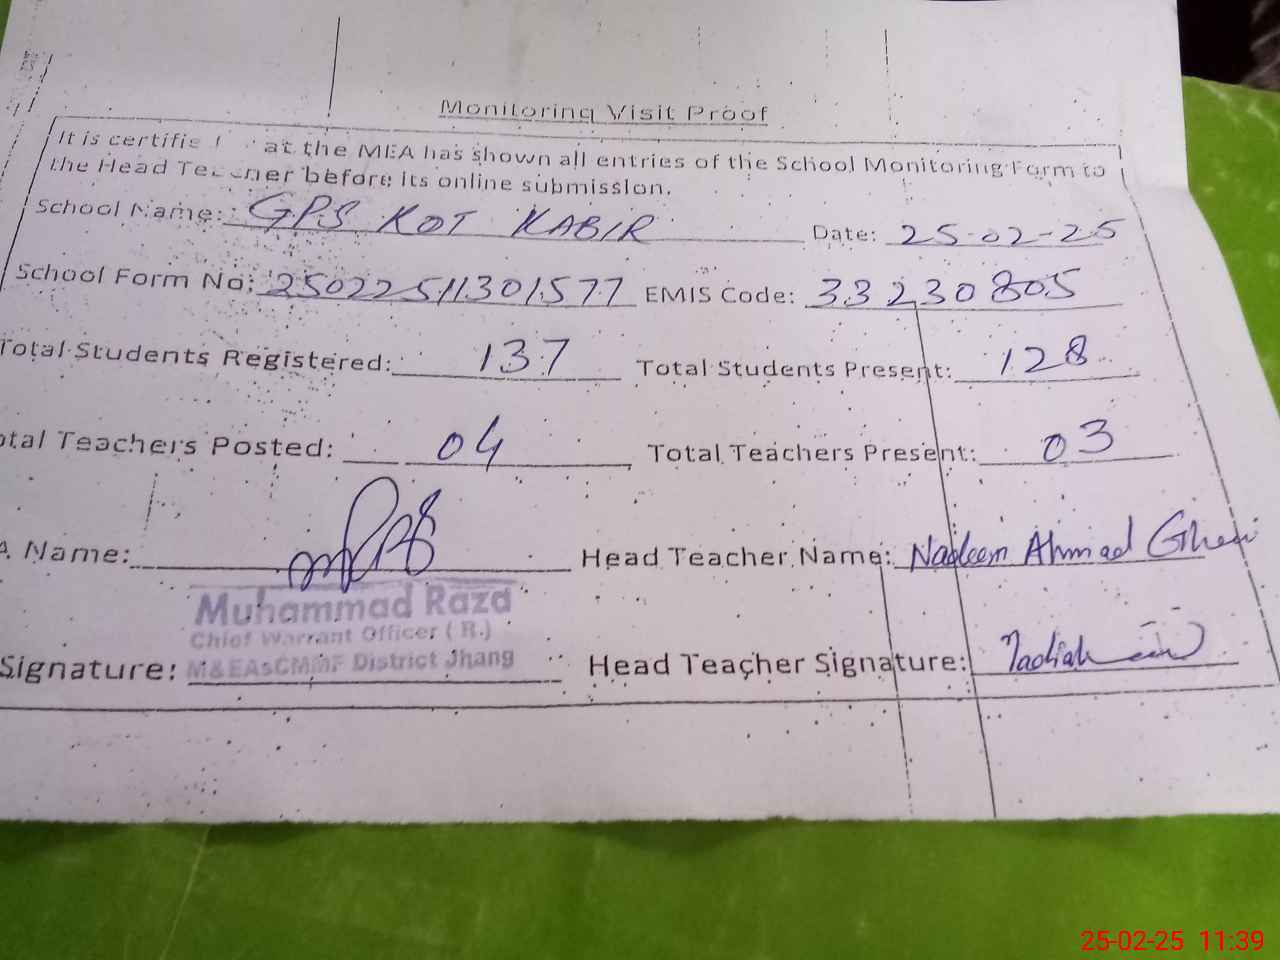 Monitoring Visit Proof
It is certifie at the MEA has shown all entries of the School Monitoring Form to
the Head Teacher before its online submission.
School Name: GPS KOT KABIR Date: 25-02-25
School Form No: 25022511301577 EMIS Code: 33230805
Total Students Registered: 137 Total Students Present: 128
otal Teachers Posted: 04 Total Teachers Present: 03
A Name: Head Teacher Name: Nadeem Ahmad
Muhammad Raza
Chief Warrant Officer ( R.)
M&EAsCMMF District Jhang
Signature: Head Teacher Signature:
25-02-25 11:39